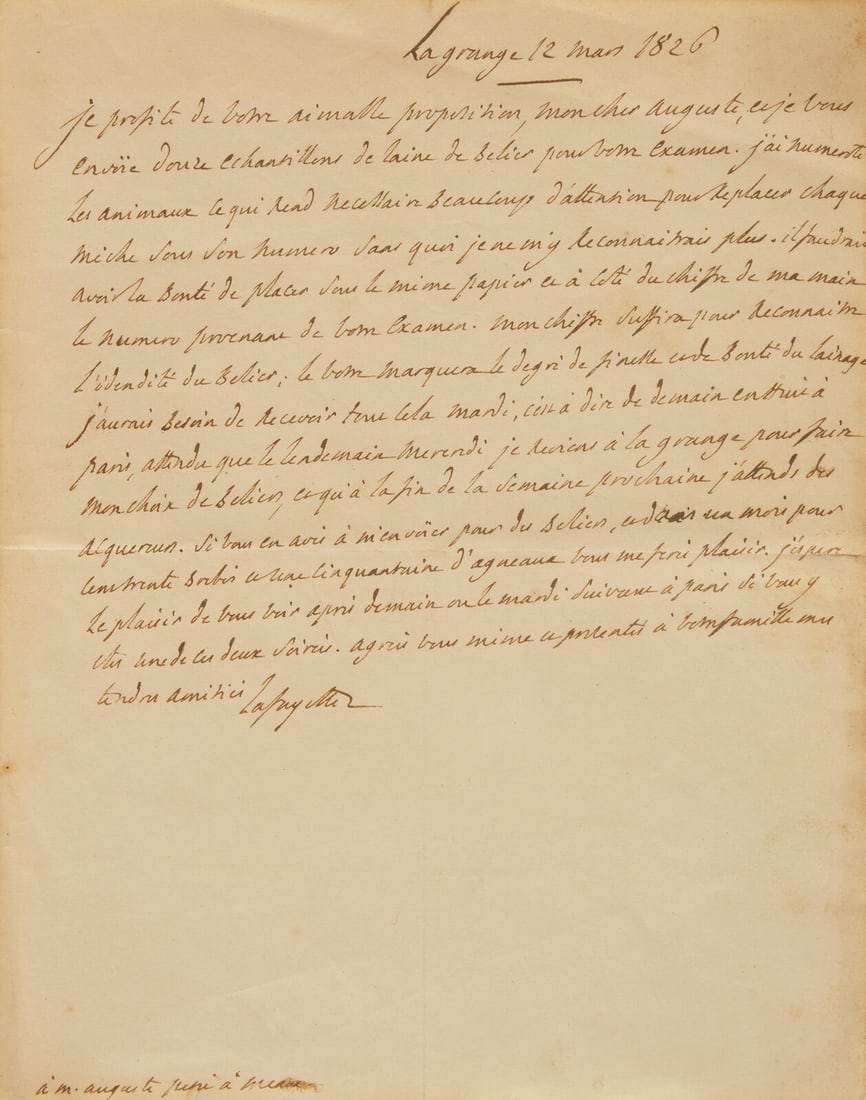 Lagrange 12 mars 1826
je profite de votre aimable proposition, mon cher auguste, et je vous
envoïe douze echantillons de laine de Belier pour votre Examen. j'ai numeroté
Les animaux ce qui Rend necessaire Beaucoup d'attention pour Replacer chaque
meche sous son numero sans quoi je ne m'y Reconnaitrais plus. il faudrait
avoir la Bonté de placer sous le même papier et à coté du chiffre de ma main
le numero provenant de votre Examen. mon chiffre suffira pour Reconnaitre
l'idendité du Belier; le votre marquera le degré de finesse et de Bonté du lainage
j'aurais Besoin de Recevoir tout cela mardi, c'est à dire de demain en huit à
paris, attendu que le lendemain mercredi je Reviens à la grange pour faire
mon choix de Beliers, et qu'à la fin de la semaine prochaine j'attends des
acquereurs. si vous en avés à m'envoïer pour des Beliers, et dans un mois pour
cent trente Brebis et une cinquantaine d'agneaux vous me ferés plaisir. j'espere
le plaisir de vous voir après demain ou le mardi suivant à paris si vous y
etes une de ces deux soirées. agreés vous même et presentés à votre famille mes
tendres amitiés Lafayette
à m. auguste à